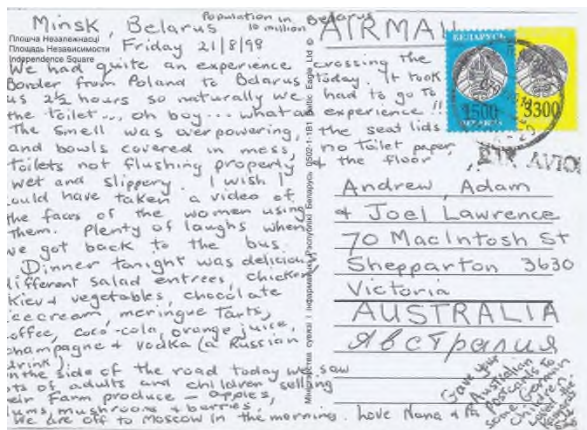 Minsk, Belarus
Population in Belarus
10 million
Плошча Незалежнасці
Площадь Независимости
Independence Square
Friday 21/8/98
We had quite an experience crossing the
Border from Poland to Belarus today. It took
us 2½ hours so naturally we had to go to
the toilet... oh boy... what an experience!!
The smell was overpowering, the seat lids
and bowls covered in mess, no toilet paper,
toilets not flushing properly & the floor
wet and slippery. I wish I
could have taken a video of
the faces of the women using
them. Plenty of laughs when
we got back to the bus.
Dinner tonight was delicious
different salad entrees, chicken
kiev & vegetables, chocolate
icecream, meringue tarts,
coffee, coco-cola, orange juice,
champagne & vodka (a Russian
drink)
On the side of the road today we saw
lots of adults and children selling
their Farm produce - apples,
plums, mushrooms & berries.
We are off to Moscow in the morning. Love Nana & Pa
AIRMAIL
БЕЛАРУСЬ
1500
3300
AVION
Andrew, Adam
& Joel Lawrence
70 MacIntosh St
Shepparton 3630
Victoria
AUSTRALIA
Австралия
Gave your
Australian
Postcards to
some German
children
Baltic Eagle Ltd ©